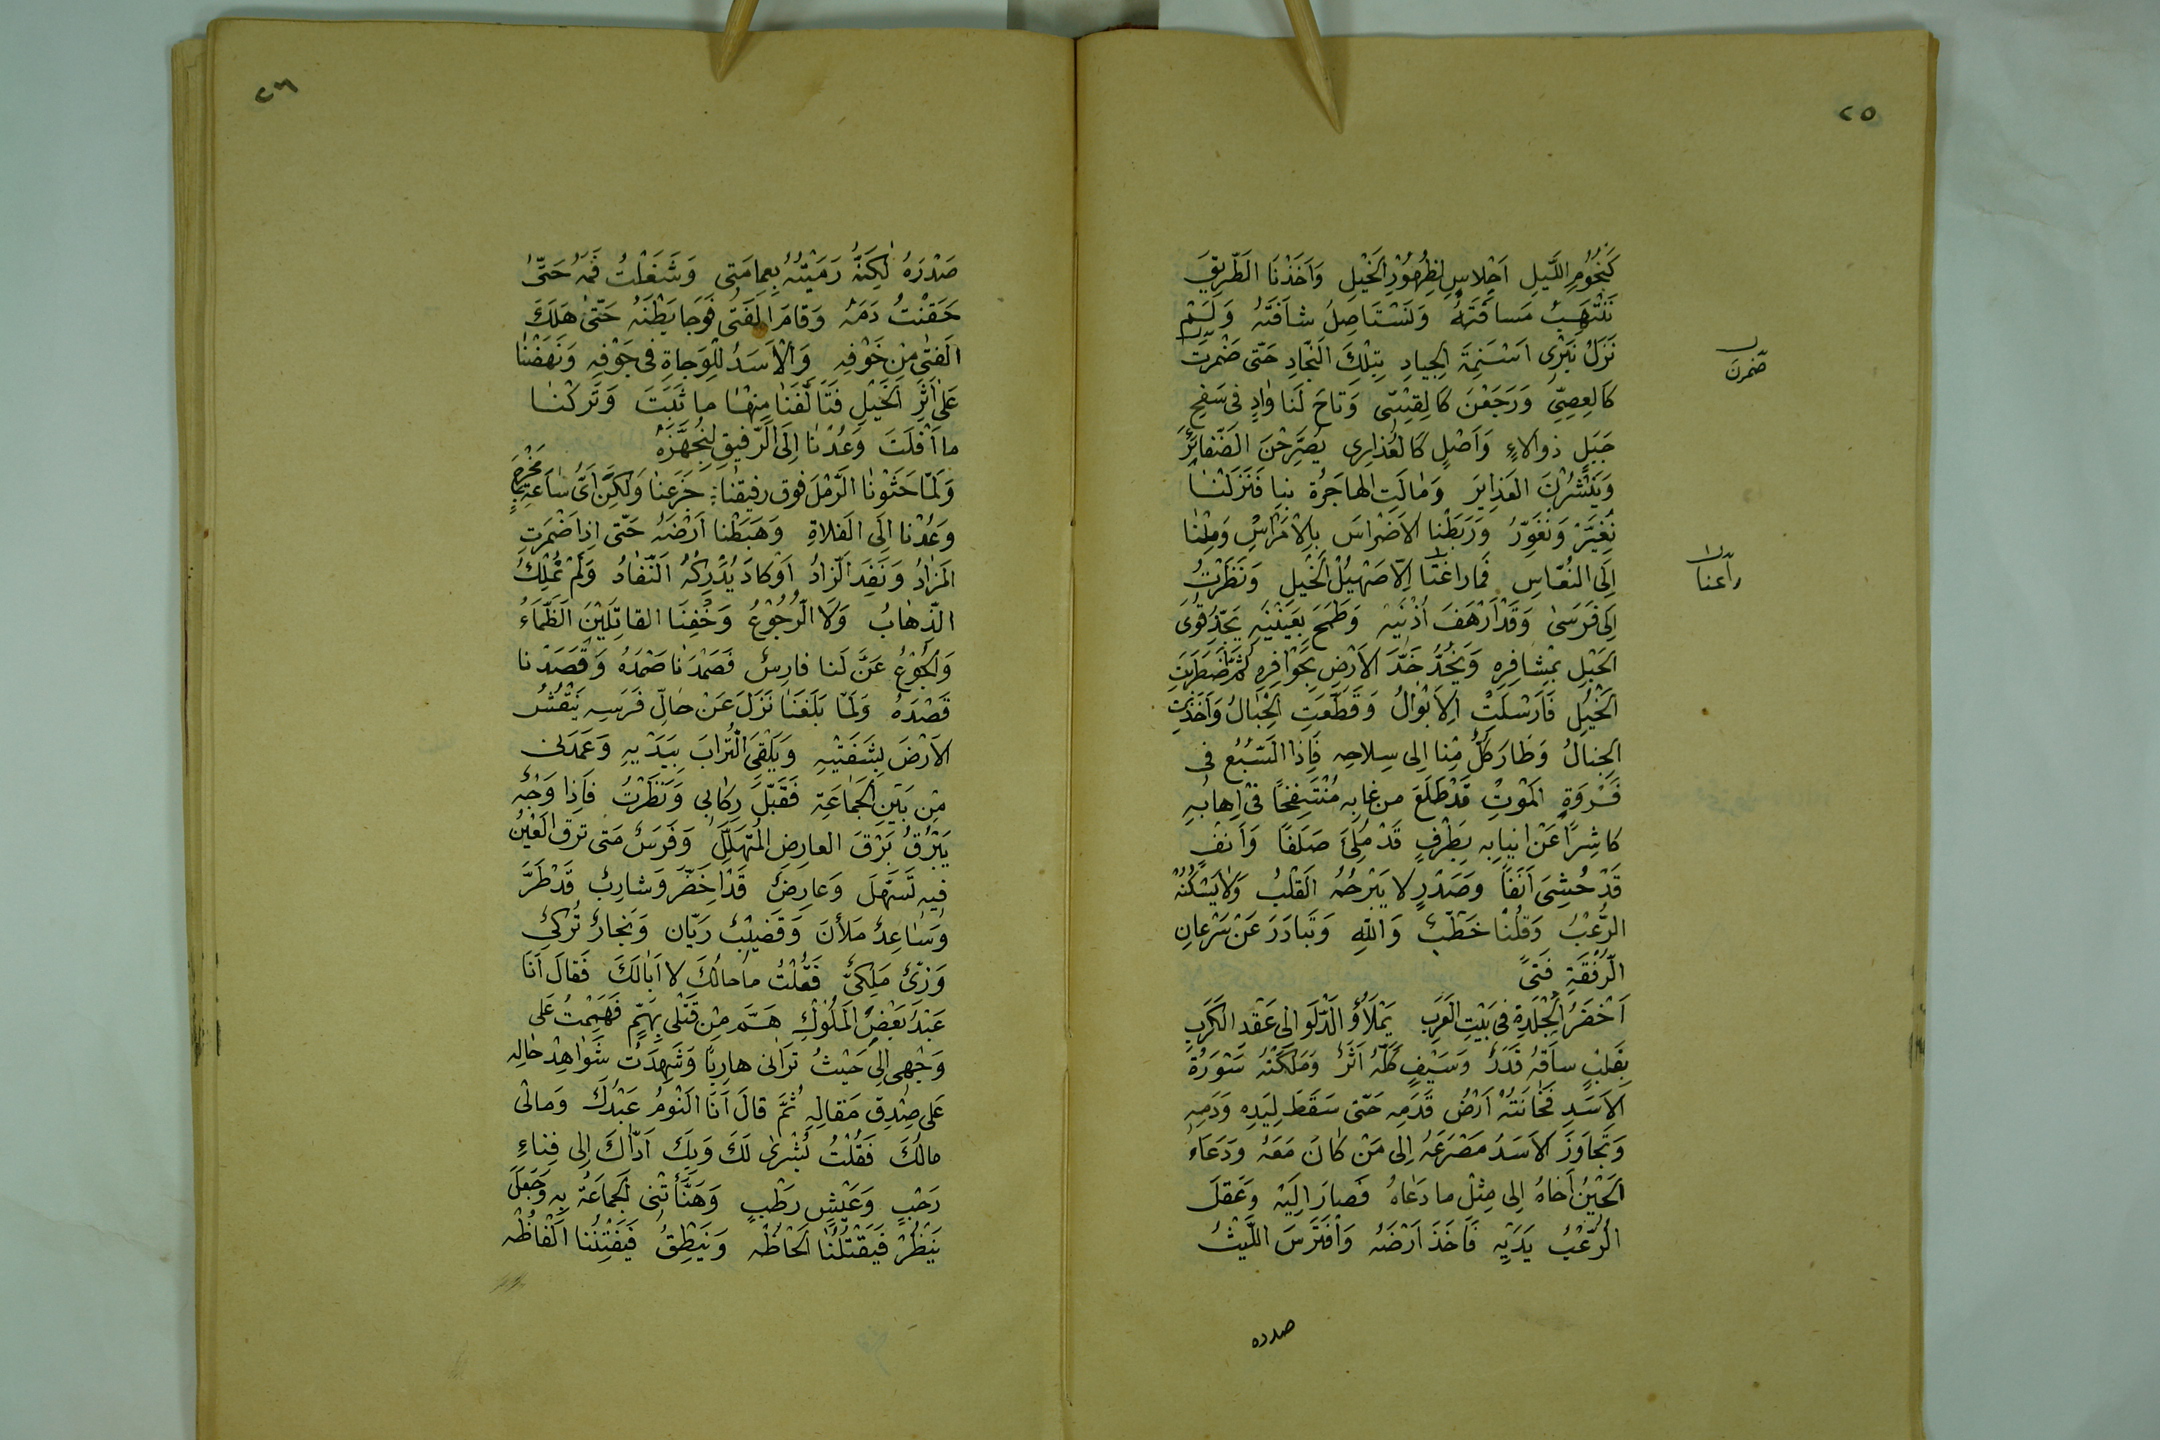 ٢٥
كَنُجُومِ اللَّيلِ اَحْلاسٍ لِظُهُوْرِ الْخَيْلِ وَاَخَذْنَا الطَّرِيْقَ
نَنْتَهِبُ مَسافَتَهُ وَنَسْتَاصِلُ شافَتَهُ وَلَمْ
نَزَلْ نَبْرْى اَسْنِمَةَ الْجِيادِ بِتِلْكَ النَّجادِ حَتّى ضْمرتَ
ضّمرنَ
كَالعِصِيِّ وَرَجَعْنَ كَالقِسِّى وَتاحَ لَنا وٰادٍ فى سَفْحِ
جَبَلٍ ذوالاءٍ وَاَصْلٍ كَالعُذارى يُصَرِّحْنَ الضَّفائرَ
وَيَنْشُرْنَ الغَدايرَ وَمٰالَتِ الهاجَرةُ بنِا فَنَزَلْنا
نُغَيّرْ وَنُغَوِّرُ وَرَبَطْنا الاَضْراسَ بالاِمْرَاْسِ وَمِلْنا
اِلَى النُّعاسِ فَما راعَنا اِلّا صَهْيلُ الْخَيلِ وَنَظَرْتُ
رٱعنا
اِلى فَرَسىٰ وَقَدْ اَرْهَفَ اُذْنَيْهِ وَطَمَحَ بِعَيْنَيْهِ يَجُذُّ قُوٰىَ
الْحَبْلِ بِمْشافِرِهِ وَيَخُدُّ خَدَّ الاَرْضِ بِحَوْافِرِهِ ثُمَّ اضْطَرَبَتِ
الْخَيْلُ فَاَرْسَلَتْ الاَبْوٰالُ وَقَطَّعَتِ الْحِبْالُ وَاَخَذَتِ
الْجِبالُ وَطارَ كُلُّ مِّنا اِلى سِلاحِهِ فَاِذا السَّبُعُ فى
فَرْوَةِ المَوْتْ قَدْ طَلَعَ من غابِهِ مُنْتَفِخًا فى اِهابِهِ
كاشِرًا عَنْ اَنيابِه بِطَرْفٍ قَدْ مُلِئَ صَلَفًا وَاَنفٍ
قَدْ حُشِىَ اَنَفًا وَصَدْرٍ لا يَبْرحُهُ القَلْبُ وَلايَسْكُنُهُ
الرُّعْبُ وَقُلْنا خَطْبٌ وَاللهِ وَتَبادَرَ عَنْ سَرْعانِ
الرُّفْقَةِ فَتىً
اَخْضَرُ الْجِلْدَةِ فى بَيْتِ العَرَبِ يَمْلَأُو الدَّلْوَ اِلى عَقْدِ الكَرَبِ
بِقَلبٍ ساقَهُ قَدَرٌ وَسَيْفٍ كُلّهُ اَثَرٌ وَمَلَكَتْهُ سَوْرَةُ
الاَسَدِ فَخٰانَتْهُ اَرْضُ قَدَمِهِ حَتّى سَقَطَ لِيَدِهِ وَدَمِهِ
وَتَجاوَزَ الاَسَدُ مَصْرَعَهُ اِلى مَنْ كانَ مَعَهُ وَدَعَاءَ
الْحَيْنُ اَخاهُ اِلى مِثْلِ ما دَعٰاهُ فَصارَ اِلَيْهِ وَعَقَلَ
الرُّعْبُ يَدَيْهِ فَاَخَذَ اَرْضَهُ وَافْتَرَسَ اللَّيثُ
صدره
٢٦
صَدْرَهُ لٰكِنَّ رَمَيْتُهُ بِعِمامَتى وَشَغَلْتُ فَمَهُ حَتّىٰ
حَقَنْتُ دَمَهُ وَقامَ الفَتى فَوَجا بَطْنَهُ حَتّىٰ هَلَكَ
الفَتىٰ مِنْ خَوْفِهِ وَالْاَسَدُ لِلْوَجاةِ فى جَوْفِهِ وَنَهَضْنا
عَلىٰ اَثَرِ الْخَيْلِ فَتَاَلَّفْنَا مِنهْا ما ثَبَتَ وَتَركْنا
ما اَفْلَتَ وَعُدْنا اِلَى الرّفيقِ لِنُجَهّزَهُ
وَلَمّا حَثَوْنا الرَّمْلَ فوق رفيقنٰا: جَزَعِنا وَلكِنْ اَىُّ سٰاعَةِ مَجْزَعِ
وَعُدْنا اِلَى الفَلاةِ وَهَبَطْنا اَرْضَهُ حَتّى اِذا ضْمَرتِ
المَزٰادُ وَنَفِدَ الزّادُ اَوْكادَ يُدْرِكُهُ النَّفادُ وَلَمْ نَمْلِكِ
الذَّهٰابُ وَلَا الرُّجُوْعُ وَخِفْنَا القاتِلَيْنِ الظَّمَاءُ
وَالْجُوْعُ عَنَّ لَنا فارِسٌ فَصَمْدنَا صَمْدَهُ وَقَصَدْنا
قَصْدَهُ وَلَمّا بَلَغَنا نَزَلَ عَنْ حالِّ فَرَسِهِ يَنْقُشُ
الاَرْضَ بِشَفَتَيْهِ وَيَلْقَى التُّرابَ بِيَدَيْهِ وَعَمَدَنى
مِن بَيْنِ الْجَمٰاعَةِ فَقَبَّلَ رِكابى وَنَظَرْتُ فَاِذا وَجْهٌ
يَبْرُقُ بَرْقَ العارِضِ المُتَهَلِّلِ وَفَرَسٌ مَتى ترقَ العَيْنُ
فيهِ تَسَهَّلَ وَعارِضٌ قَدْ اخْضَّرَ وَشارِبٌ قَدْطَرَّ
وَسٰاعِدٌ مَلاْنَ وَقَضيْبٌ رَيّان وَنجارٌ تُركىٌّ
وَزِىٌّ مَلِكىٌّ فَقُلْتُ ماحالُكَ لا اَبٰالَكَ فَقالَ اَنَا
عَبْدُ بَعْضِ المُلُوْكِ هَمَّ مِنْ قَتْلى بِهَمٍّ فَهِمْتُ عَلى
وَجْهى اِلى حَيْثُ تَرٰانى هارِبًا وَشَهِدَتْ شَوٰاهِدُ حٰالِهِ
عَلى صِدْقِ مَقالِهِ ثُمَّ قالَ اَنَا اليَوْمُ عَبْدُكَ وَمالى
مالُكَ فَقُلْتُ بُشْرىٰ لَكَ وَبِكَ اَدّاكَ اِلى فِناءٍ
رَحْبٍ وَعَيْشٍ رَطْبٍ وَهَنَّأَتْنى الْجَماعَةُ بِهِ وَجَعَلَ
يَنْظُرُ فَيَقْتُلُنا اَلْحاظُهُ وَيَنْطِقُ فَيَفْتِنُنا اَلْفاظُهُ